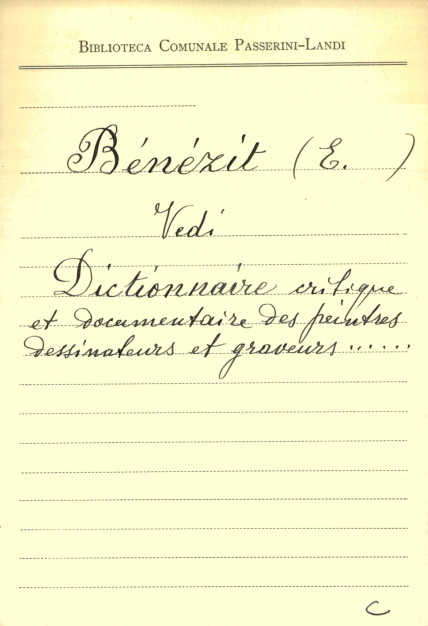 BIBLIOTECA COMUNALE PASSERINI-LANDI
Bénézit (E. )
Vedi
Dictionnaire critique
et documentaire des peintres
dessinateurs et graveurs ......
C